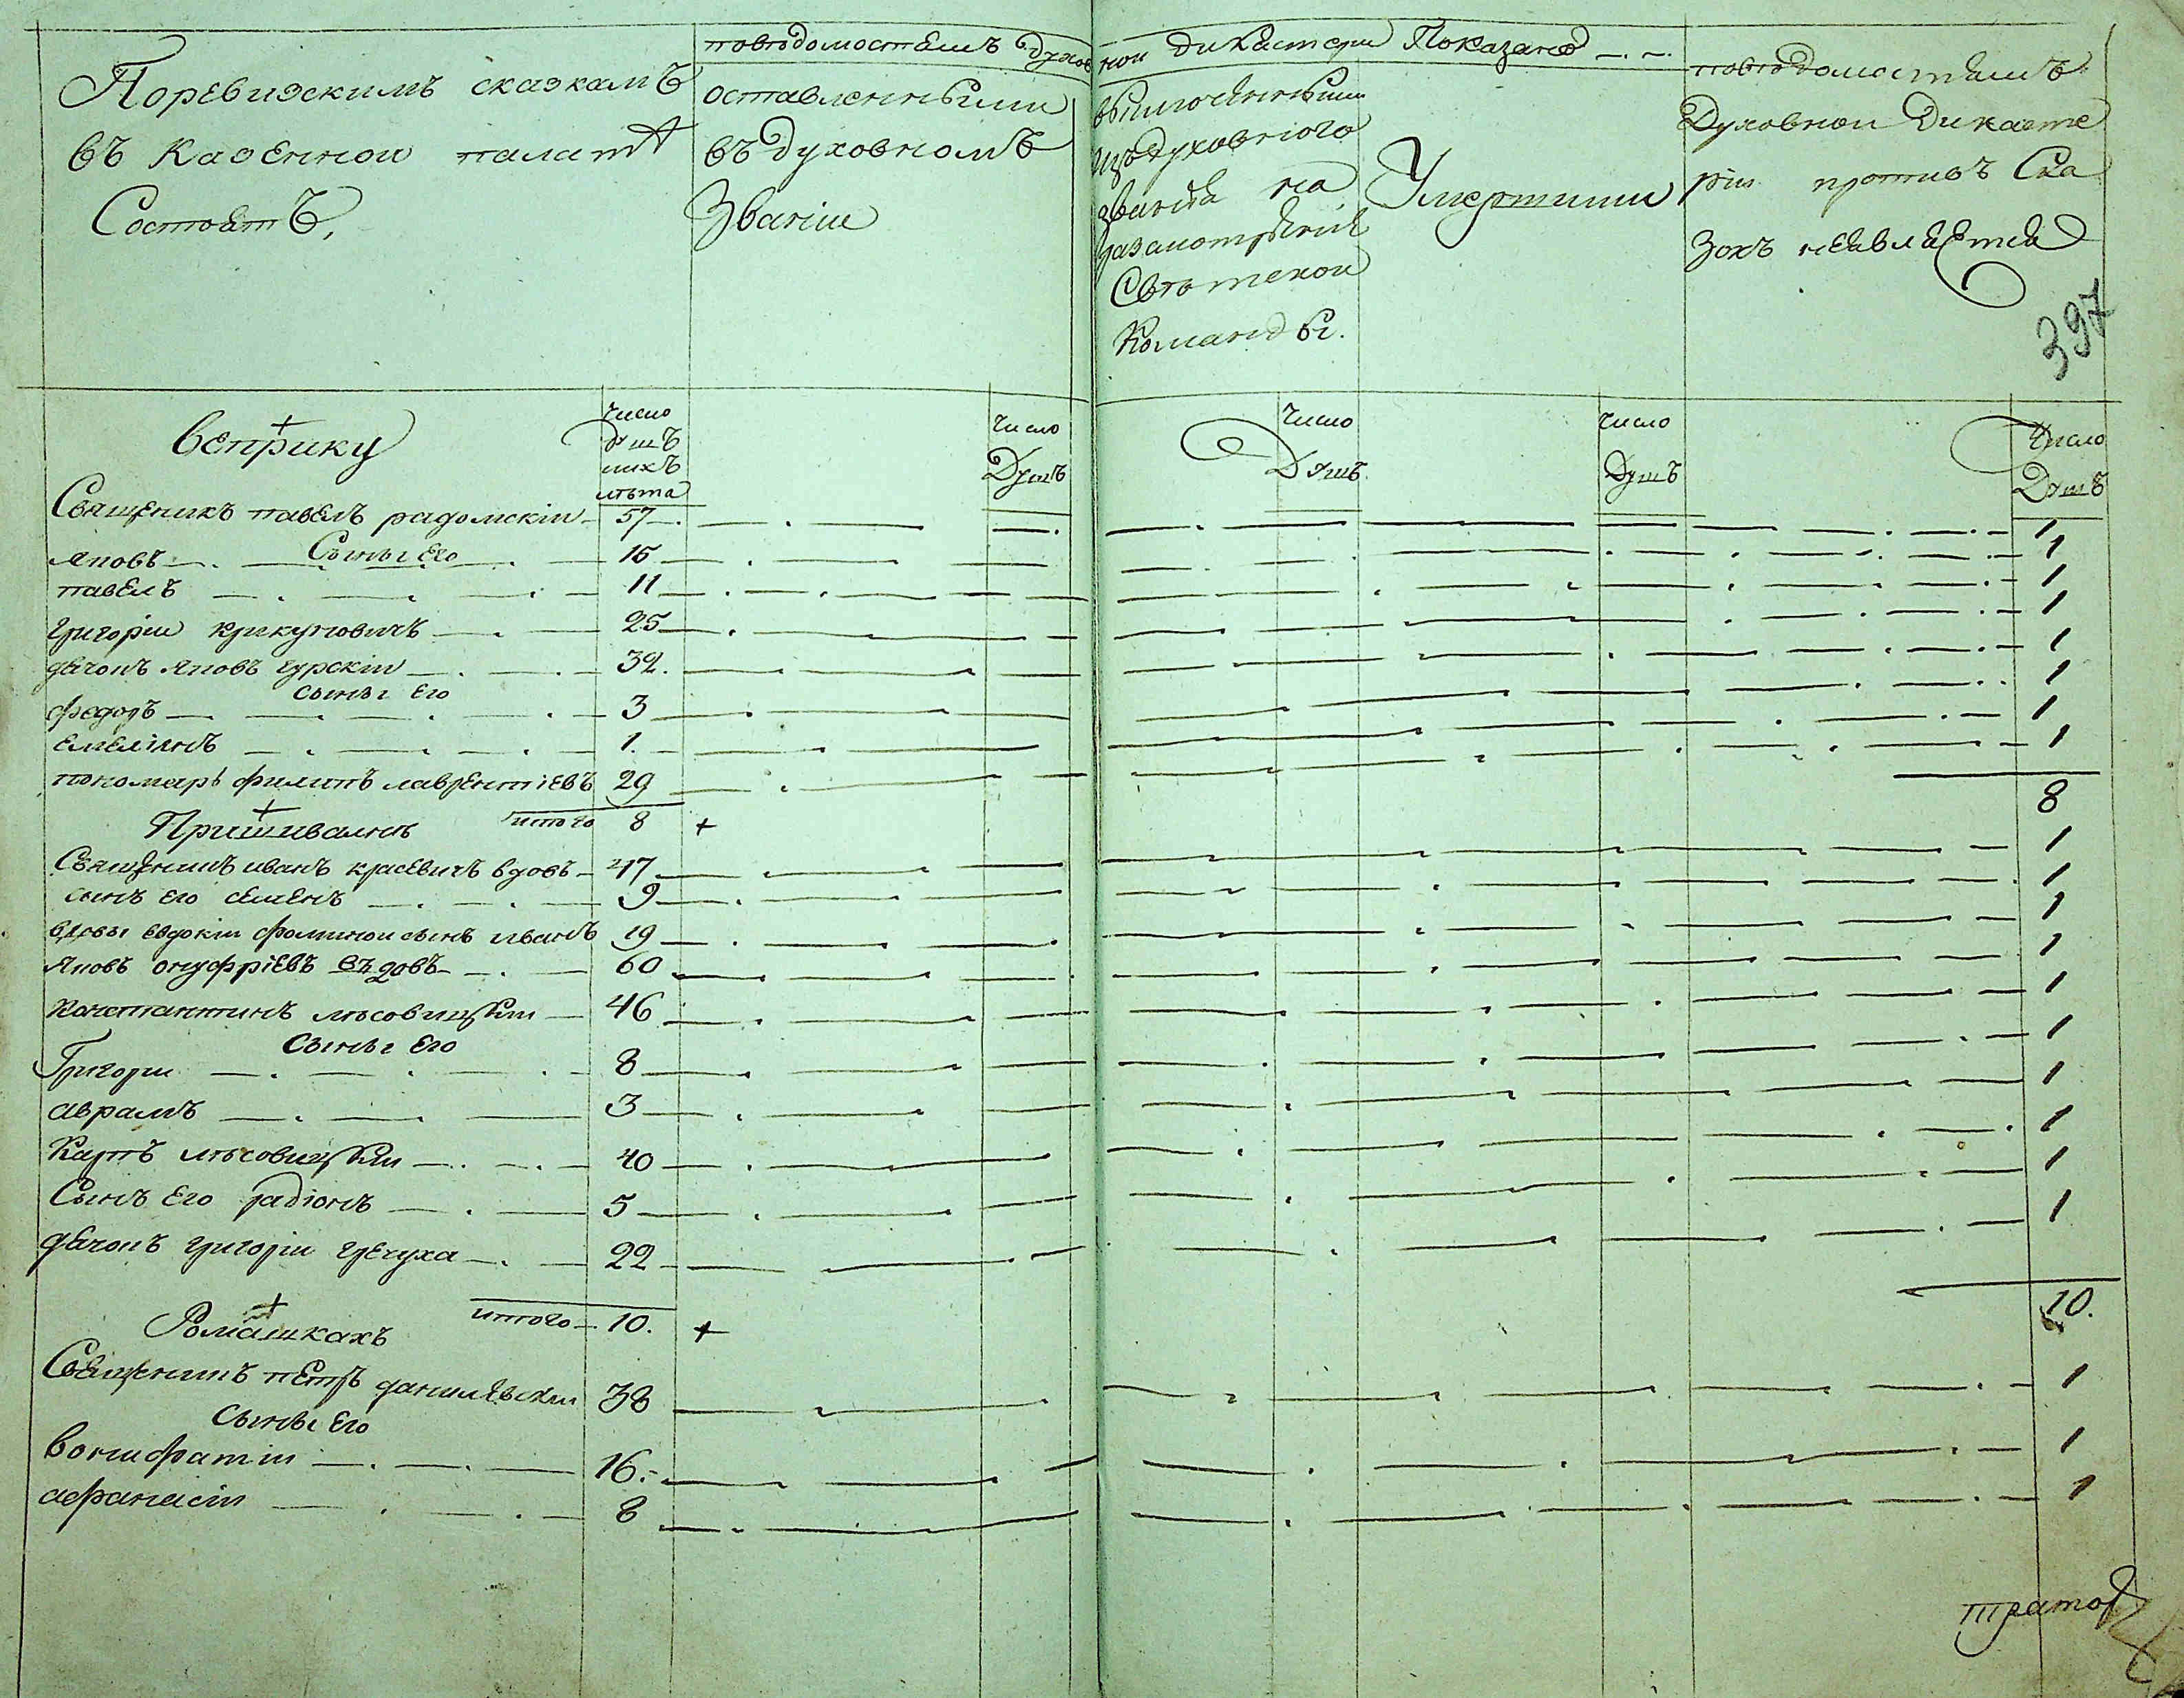 Поревизскимъ сказкамъ
въ Казенной палатѣ
Состоятъ,
повѣдомостямъ духов
ной Дикастеріи Показано
оставленными
въ духовномъ
Званіи
выключенными
изъ духовного
званія на
Разсмотрѣніе
Свѣтской
Команды.
Умершими
повѣдомостямъ
Духовной Дикасте
ріи противъ Ска
зокъ неявляется
397
веприку
число
душъ
ихъ
лѣта
число
Душъ
число
Душъ
число
Душъ
Число
Душъ
Священикъ павелъ радомскій 57 1
Сыны Его
яковъ 15 1
павелъ 11 1
григорій крикуновичъ 25 1
дячокъ яковъ гурскій 32. 1
сыны Его
федоръ 3 1
емеліянъ 1. 1
пономарь филипъ лаврентіевъ 29 1
итого 8 + 8
Пришивалнѣ
Священникъ иванъ красевичъ вдовъ 47 1
сынъ его семенъ 9 1
вдовы евдокіи фоминой сынъ иванъ 19 1
яковъ онуфріевъ въдовъ 60 1
константинъ лѣсовицкій 46 1
Сыны Его
Григорій 8 1
аврамъ 3 1
Карпъ лѣсовицкій 40 1
Сынъ Его радіонъ 5 1
дячокъ григорій гречуха 22 1
итого 10. + 10.
Ромашкахъ
Священникъ петръ данилевскій 38 1
Сыны Его
вонифатій 16. 1
афанасій 8 1